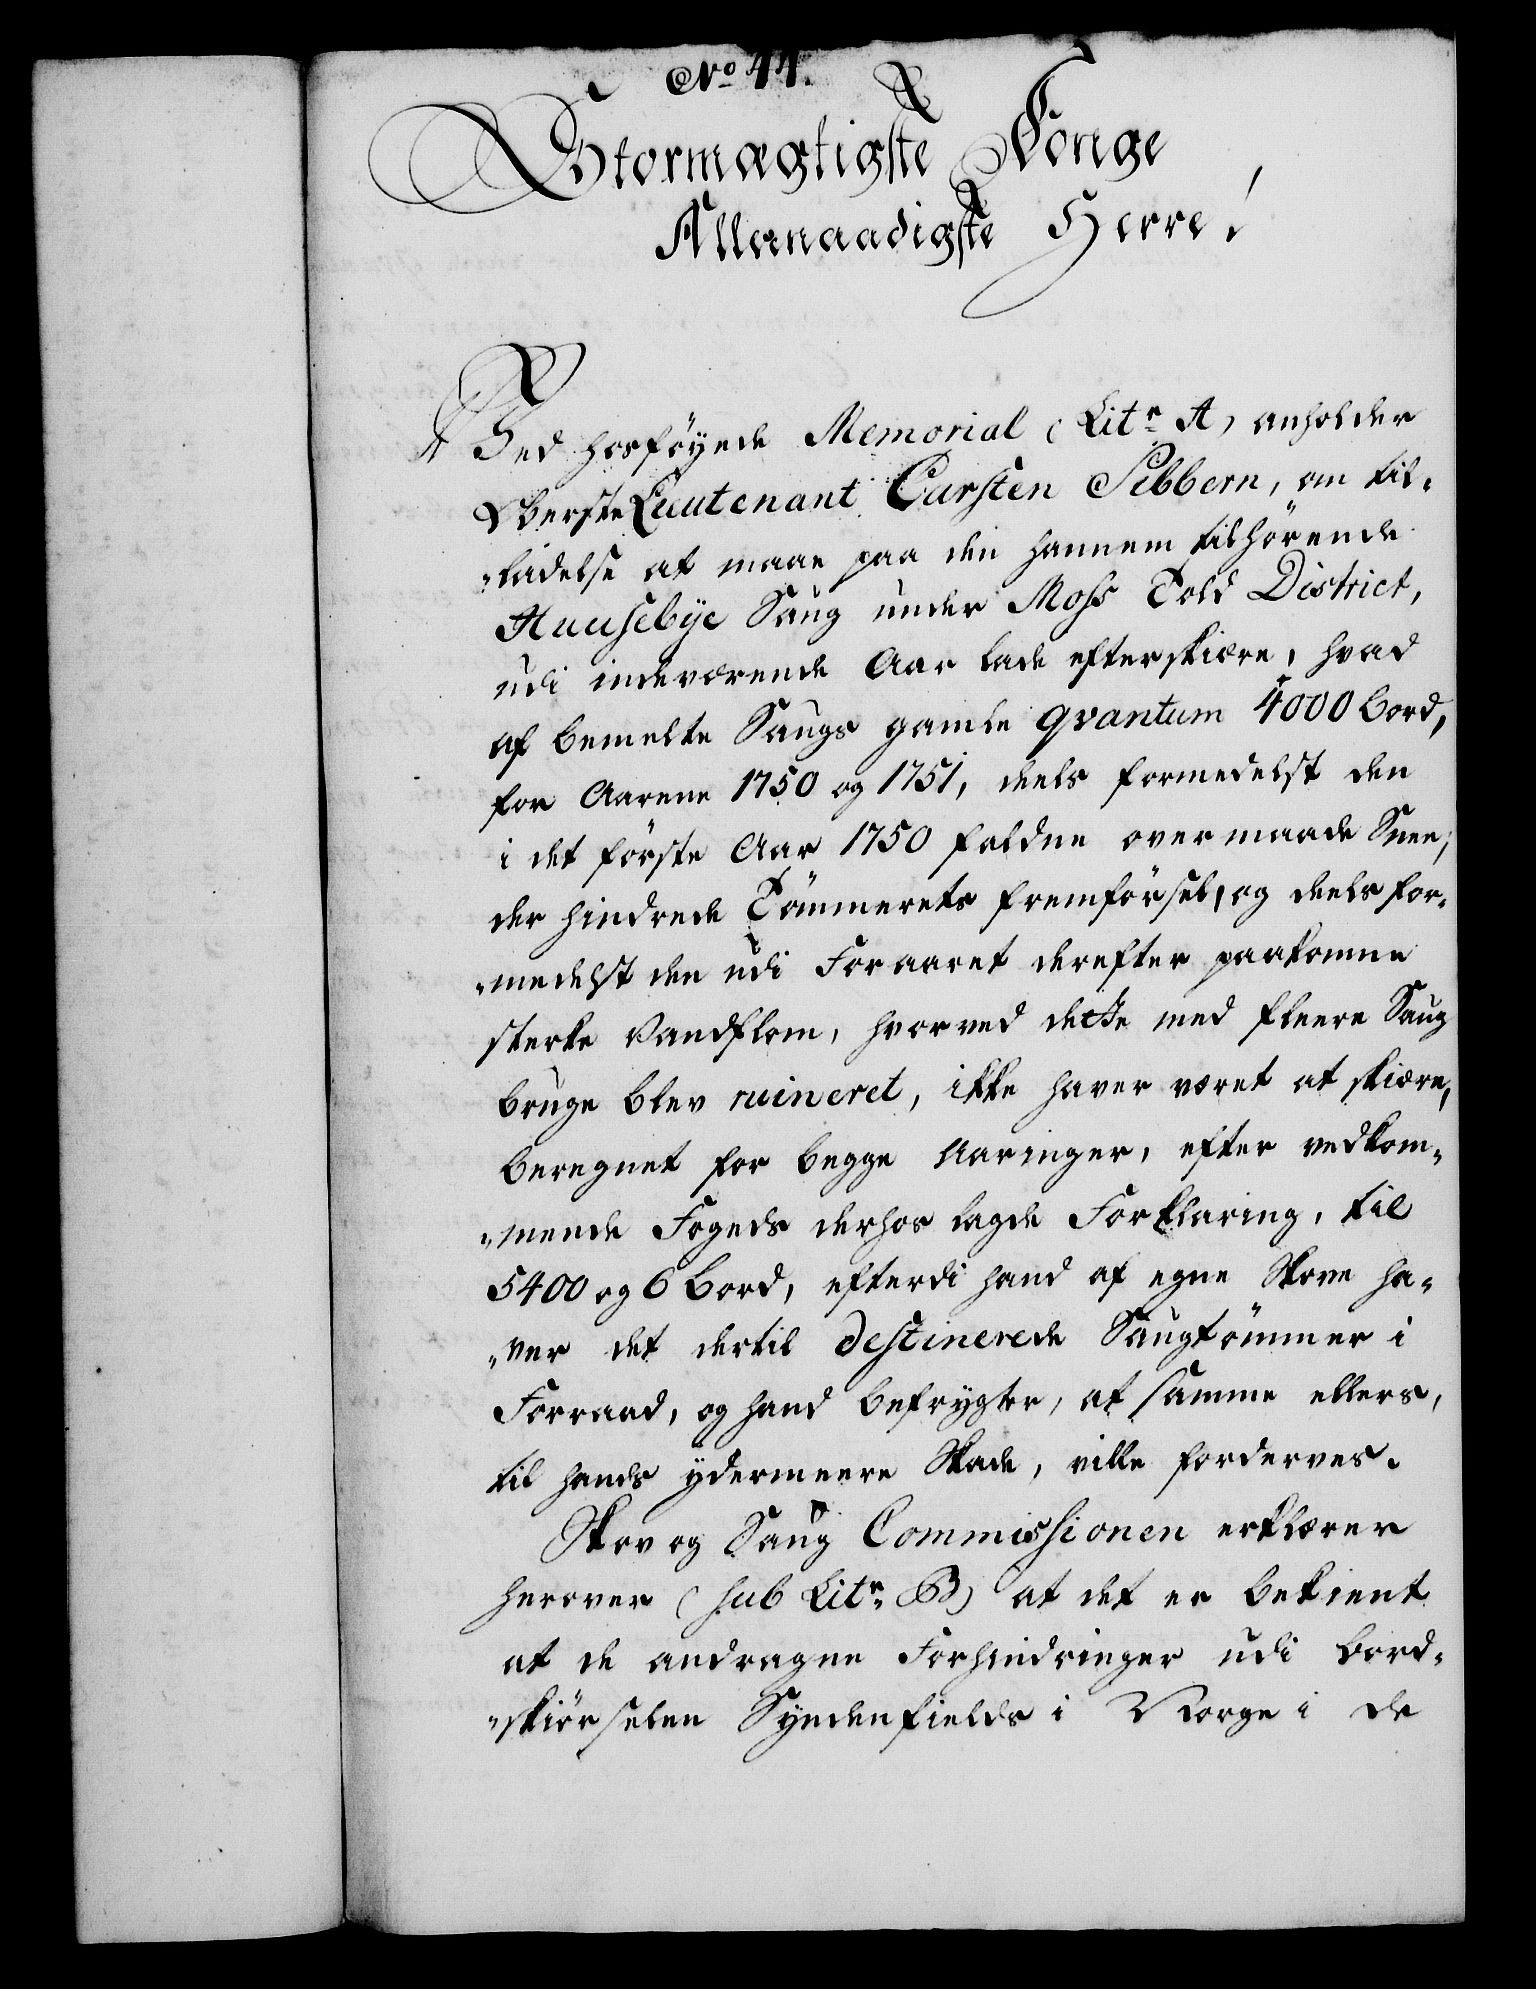 No 44.
Stormægtigste Konge
Allernaadigste Herre!
Ved hosføyede Memorial (Litr A) anholder
Oberste Lieutenant Carsten Sibbern, om til-
"ladelse at maae paa den hannem tilhørende
Huusebye Saug under Moss Told District,
udi indeværende Aar lade efterskiære, hvad
af bemelte Saugs gamle qvantum 4000 bord,
for Aarene 1750 og 1751, deels formedelst den
i det første Aar 1750 faldne overmaade Snee,
der hindrede Tømmerets fremførsel, og deels for-
"medelst den udi Foraaret derefter paakomne
sterke Vandflom, hvorved dette med fleere Saug
bruge blev ruineret, ikke haver været at skiære,
beregnet for begge Aaringer, efter vedkom-
"mende Fogeds derhos lagde Forklaring, til
5400 og 6 bord, efterdi hand af egne Skove ha-
"ver det dertil destinerede Saugtømmer i
Forraad, og hand befrygter, at samme ellers,
til hands ydermeere Skade, ville forderves.
Skov og Saug Commissionen erklærer
herover (sub Litr B) at det er bekient
at de andragne Forhindringer udi bord-
"skiørselen Syndenfields i Norge i de